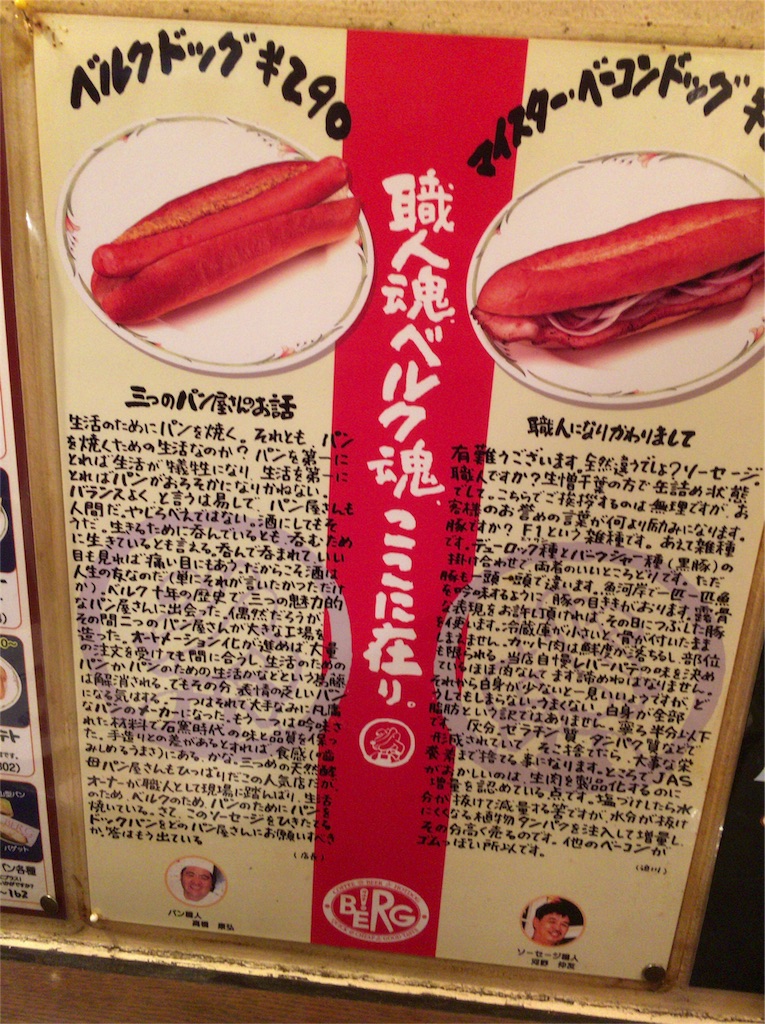 ベルクドッグ ¥290
マイスター・ベーコンドッグ ¥
職人魂ベルク魂、ここに在り。
三つのパン屋さんのお話
生活のためにパンを焼く。それとも、パン
を焼くための生活なのか？パンを第一に
とれば生活が犠牲になり、生活を第一に
とればパンがおろそかになりかねない。
バランスよく、と言うは易しで、パン屋さんも
人間だ。やじろべえではない。酒にしてもそ
うだ。生きるために呑んでいるとも、呑むため
に生きているとも言える。呑んで呑まれていい
目も見れば痛い目にもあう。だからこそ酒は
人生の友なのだ(単にそれが言いたかっただけ
か)。ベルク十年の歴史で、三つの魅力的
なパン屋さんに出会った。偶然だろうが、
その間三つのパン屋さんが大きな工場を
造った。オートメーション化が進めば、大量
の注文を受けても間に合うし、生活のための
パンかパンのための生活かなどという葛藤
は解消される。でもその分、表情の乏しいパン
になる気はする。一つはそれで大手なみに凡庸
なパンのメーカーになった。もう一つは吟味さ
れた材料で石窯時代の味と品質を保っ
た。手造りとの差があるとすれば、食感(噛
みしめるうまさ)にある。かな。三つめの天然酵
母パン屋さんもひっぱりだこの人気店だが、
オーナーが職人として現場に踏んばり、生活
のため、ベルクのため、パンのためにパンを
焼いている。さて、このソーセージをひきたてる
ドッグパンをどのパン屋さんにお願いすべき
か、答はもう出ている
(店長)
パン職人
高橋 康弘
職人になりかわりまして
有難うございます。全然違うでしょ？ソーセージ。
職人ですか？生憎千葉の方で缶詰め状態
でして。こちらでご挨拶するのは無理ですが、お
客様のお誉めの言葉が何より励みになります。
豚ですか？F1という雑種です。あえて雑種
です。デュロック種とバークシャー種(黒豚)の
掛け合わせで、両者のいいところどりです。ただ
豚も一頭一頭で違います。魚河岸で一匹一匹魚
を吟味するように、豚の目ききがおります。露骨
な表現をお許し頂ければ、その日につぶした豚
を使います。冷蔵庫が小さいと、骨が付いたまま
しまえません。カット肉は鮮度が落ちるし、部位
も限られる。当店自慢レバーパテの味を決め
ているほほ肉なんてまず諦めねばなりません。
それから白身が少ないと一見いいようですが、ど
うしてもしまらない、うまくない。白身が全部
脂肪という訳ではありません。寧ろ半分以下
です。灰分、ゼラチン質、タンパク質などで
形成されていて、そこ捨てたら、大事な栄
養素まで捨てる事になります。ところでJAS
がおかしいのは、生肉を製品化するのに
増量を認めている点です。塩づけしたら水
分が抜けて減量する筈ですが、水分が抜け
にくくなる植物タンパクを注入して増量し、
その分高く売るのです。他のベーコンが
ゴムっぽい所以です。
(迫川)
ソーセージ職人
河野 仲友
BERG